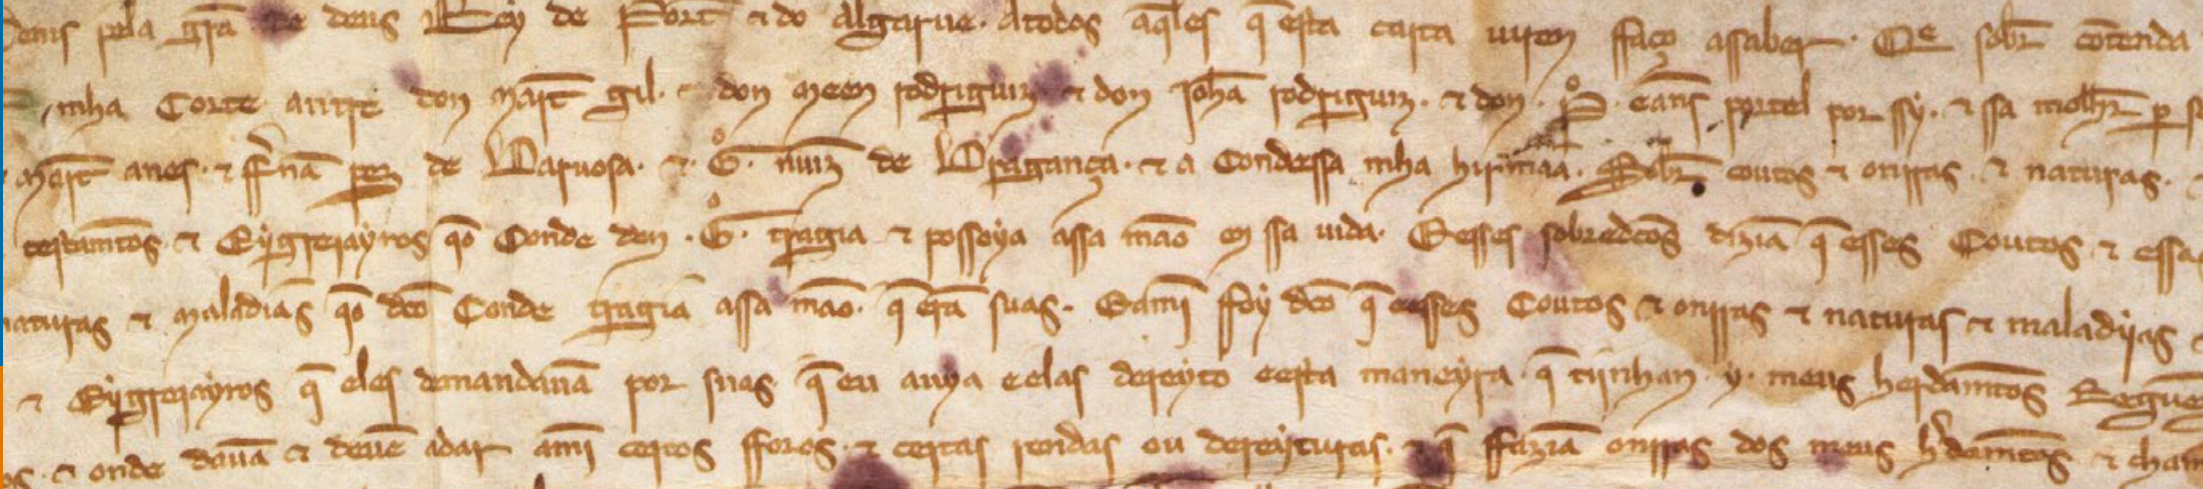 Denis pela grã de deus Rey de Port ⁊ do Algarue. Atodos aqles q̃ esta carta uiren ffaço assaber. Qe sobr̃ cõtenda
mha Corte antre don Mart̃ gil. ⁊ don Meen rodriguiz ⁊ don Johã rodriguiz. ⁊ don. P̊. eañs portel por ssy. ⁊ ssa molhr̃ p s
Mart̃ anes. ⁊ ffr̃nã pez de Baruosa. ⁊. G̊. nuiz de Bragança. ⁊ a Condessa mha hirmaa. Sobr̃ coutos ⁊ onrras. ⁊ naturas.
testamẽtos. ⁊ Eygreiayros qo Conde don. G̊. tragia ⁊ possoya assa mão en ssa uida. Eesses sobredc̃os diziã q̃ esses Coutos. ⁊ essas
naturas ⁊ maladias qo dc̃o Conde tragiã assa mão. q̃ erã suas. Eamĩ ffoy dc̃o q̃ eesses Coutos ⁊ onrras ⁊ naturas ⁊ maladyas
⁊ Eygreiayros q̃ eles demandauã por suas q̃ eu auya eelas dereyto eesta maneyra q̃ tijnhan y. meus herdamẽtos Reguẽ
os. ⁊ onde dauã ⁊ deuẽ adar amĩ certos fforos. ⁊ certas rendas ou dereyturas. ⁊ q̃ ffaziã onrras dos meus hr̃damẽtos ⁊ cham